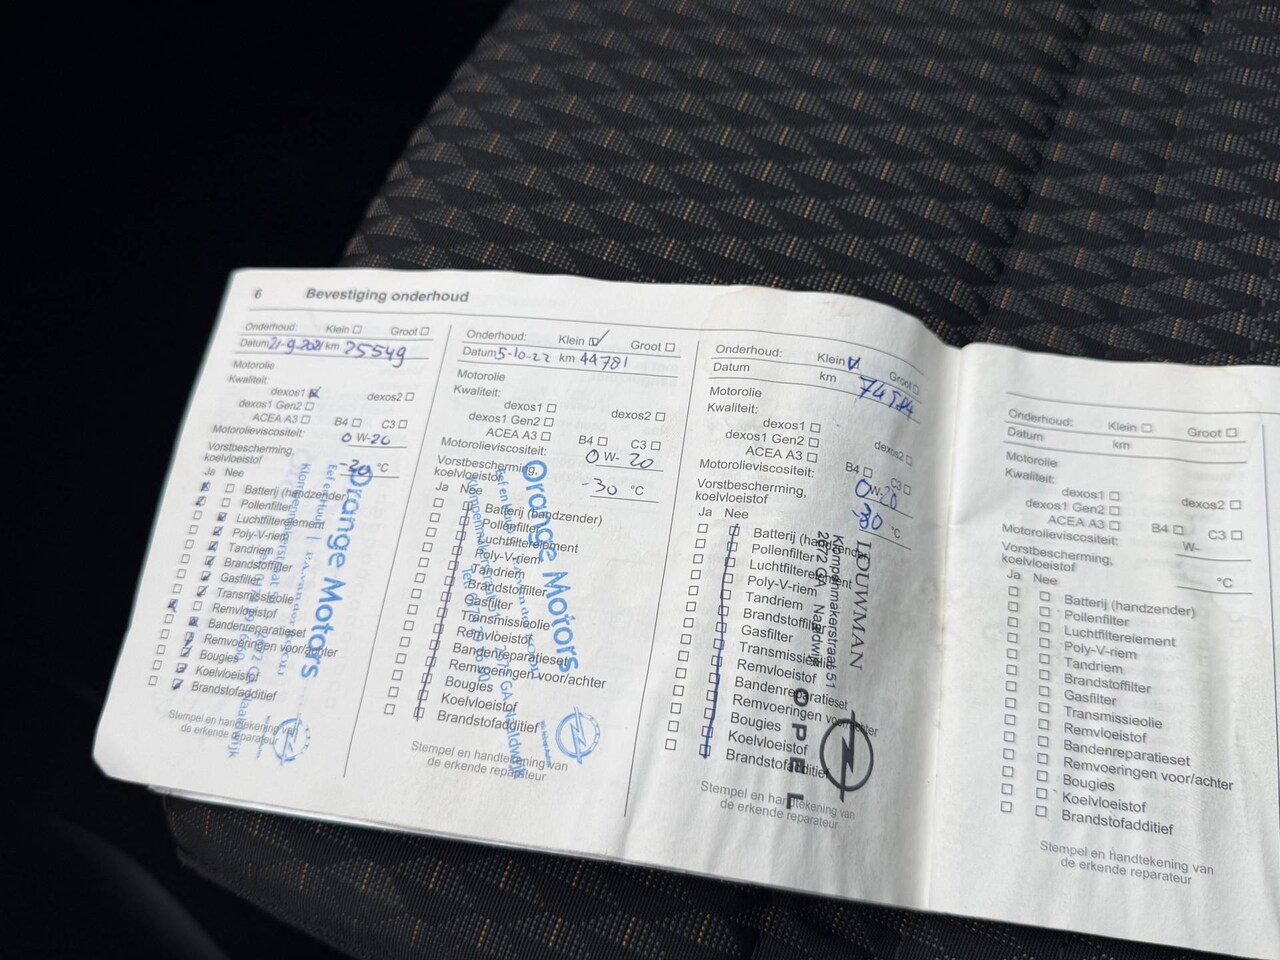 6 Bevestiging onderhoud
Onderhoud: Klein Groot
Datum 21-9-2021 km 25549
Motorolie
Kwaliteit:
dexos1 dexos2
dexos1 Gen2
ACEA A3 B4 C3
Motorolieviscositeit: 0 W-20
Vorstbescherming,
koelvloeistof -30 °C
Ja Nee
Batterij (handzender)
Pollenfilter
Luchtfilterelement
Poly-V-riem
Tandriem
Brandstoffilter
Gasfilter
Transmissieolie
Remvloeistof
Bandenreparatieset
Remvoeringen voor/achter
Bougies
Koelvloeistof
Brandstofadditief
Stempel en handtekening van
de erkende reparateur
Orange Motors
Onderhoud: Klein Groot
Datum 5-10-22 km 44781
Motorolie
Kwaliteit:
dexos1 dexos2
dexos1 Gen2
ACEA A3 B4 C3
Motorolieviscositeit: 0 W- 20
Vorstbescherming,
koelvloeistof -30 °C
Ja Nee
Batterij (handzender)
Pollenfilter
Luchtfilterelement
Poly-V-riem
Tandriem
Brandstoffilter
Gasfilter
Transmissieolie
Remvloeistof
Bandenreparatieset
Remvoeringen voor/achter
Bougies
Koelvloeistof
Brandstofadditief
Stempel en handtekening van
de erkende reparateur
Orange Motors
Onderhoud: Klein Groot
Datum km 74584
Motorolie
Kwaliteit:
dexos1 dexos2
dexos1 Gen2
ACEA A3 B4 C3
Motorolieviscositeit: 0 W-20
Vorstbescherming,
koelvloeistof -30 °C
Ja Nee
Batterij (handzender)
Pollenfilter
Luchtfilterelement
Poly-V-riem
Tandriem
Brandstoffilter
Gasfilter
Transmissieolie
Remvloeistof
Bandenreparatieset
Remvoeringen voor/achter
Bougies
Koelvloeistof
Brandstofadditief
Stempel en handtekening van
de erkende reparateur
LOUWMAN
Klompenmakerstraat 51
2672 GA Naaldwijk
OPEL
Onderhoud: Klein Groot
Datum km
Motorolie
Kwaliteit:
dexos1 dexos2
dexos1 Gen2
ACEA A3 B4 C3
Motorolieviscositeit: W-
Vorstbescherming,
koelvloeistof °C
Ja Nee
Batterij (handzender)
Pollenfilter
Luchtfilterelement
Poly-V-riem
Tandriem
Brandstoffilter
Gasfilter
Transmissieolie
Remvloeistof
Bandenreparatieset
Remvoeringen voor/achter
Bougies
Koelvloeistof
Brandstofadditief
Stempel en handtekening van
de erkende reparateur